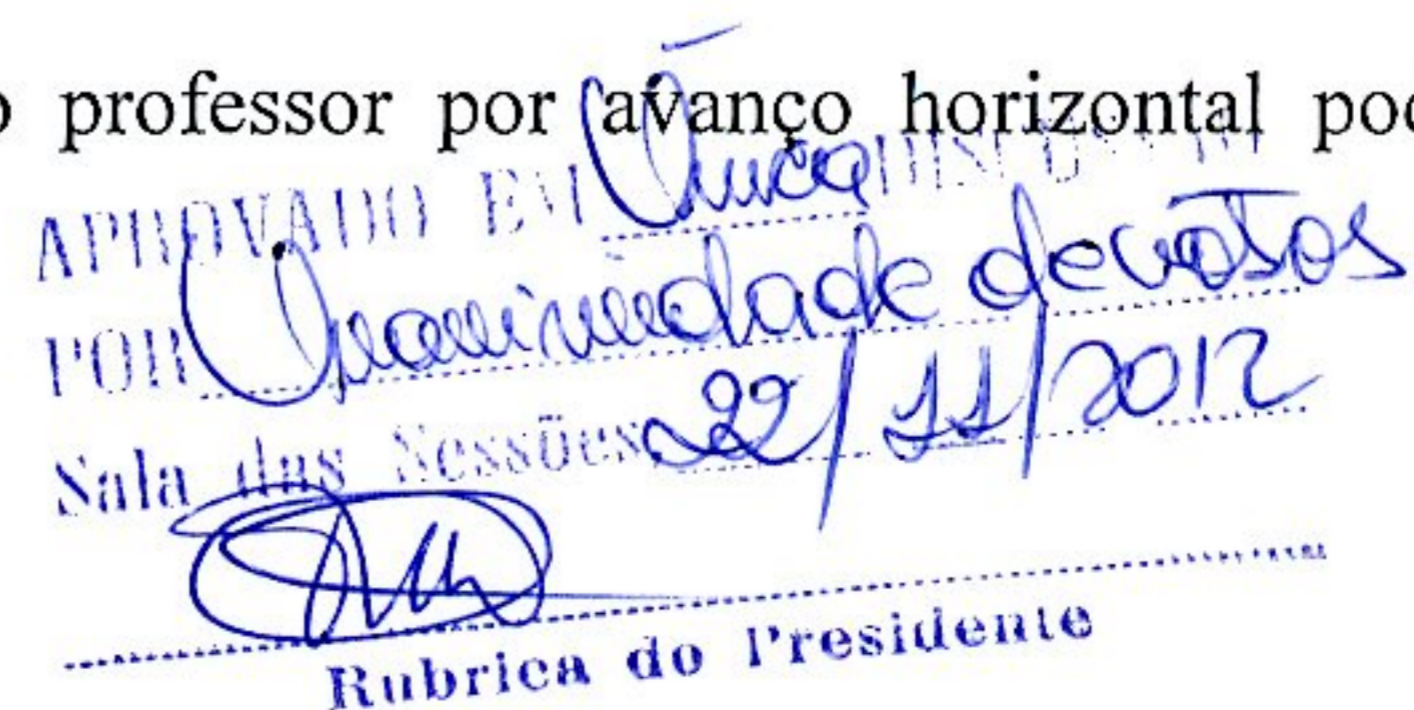 professor por avanço horizontal
APROVADO EM Única
POR Unanimidade de votos
Sala das Sessões 22/11/2012
Rubrica do Presidente